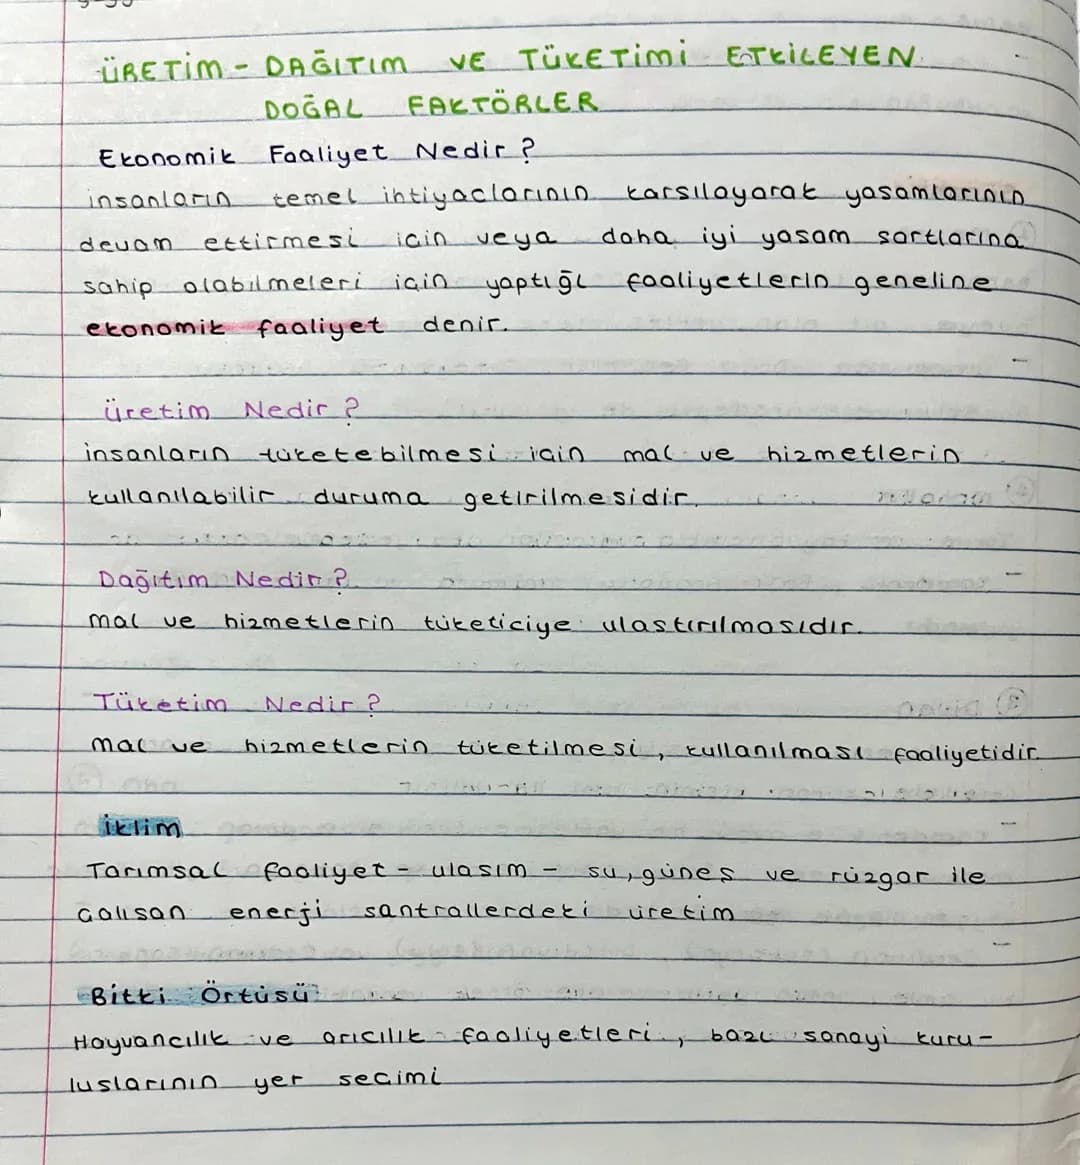 ÜRETİM - DAĞITIM VE TÜKETİMİ ETKİLEYEN
DOĞAL FAKTÖRLER
Ekonomik Faaliyet Nedir ?
insanların temel ihtiyaclarının karsılayarak yasamlarının
devam ettirmesi icin veya daha iyi yasam sartlarına
sahip olabılmeleri icin yaptığı faaliyetlerin geneline
ekonomik faaliyet denir.
üretim Nedir ?
insanların tüketebilmesi icin mal ve hizmetlerin
kullanılabilir duruma getirilmesidir.
Dağıtım Nedir ?
mal ve hizmetlerin tüketiciye ulastırılmasıdır.
Tüketim Nedir ?
mal ve hizmetlerin tüketilmesi, kullanılması faaliyetidir.
iklim
Tarımsal faaliyet - ulasım - su, günes ve rüzgar ile
calısan enerji santrallerdeki üretim
Bitki Örtüsü
Hayvancılık ve arıcılık faaliyetleri, bazı sanayi kuru-
luslarının yer secimi